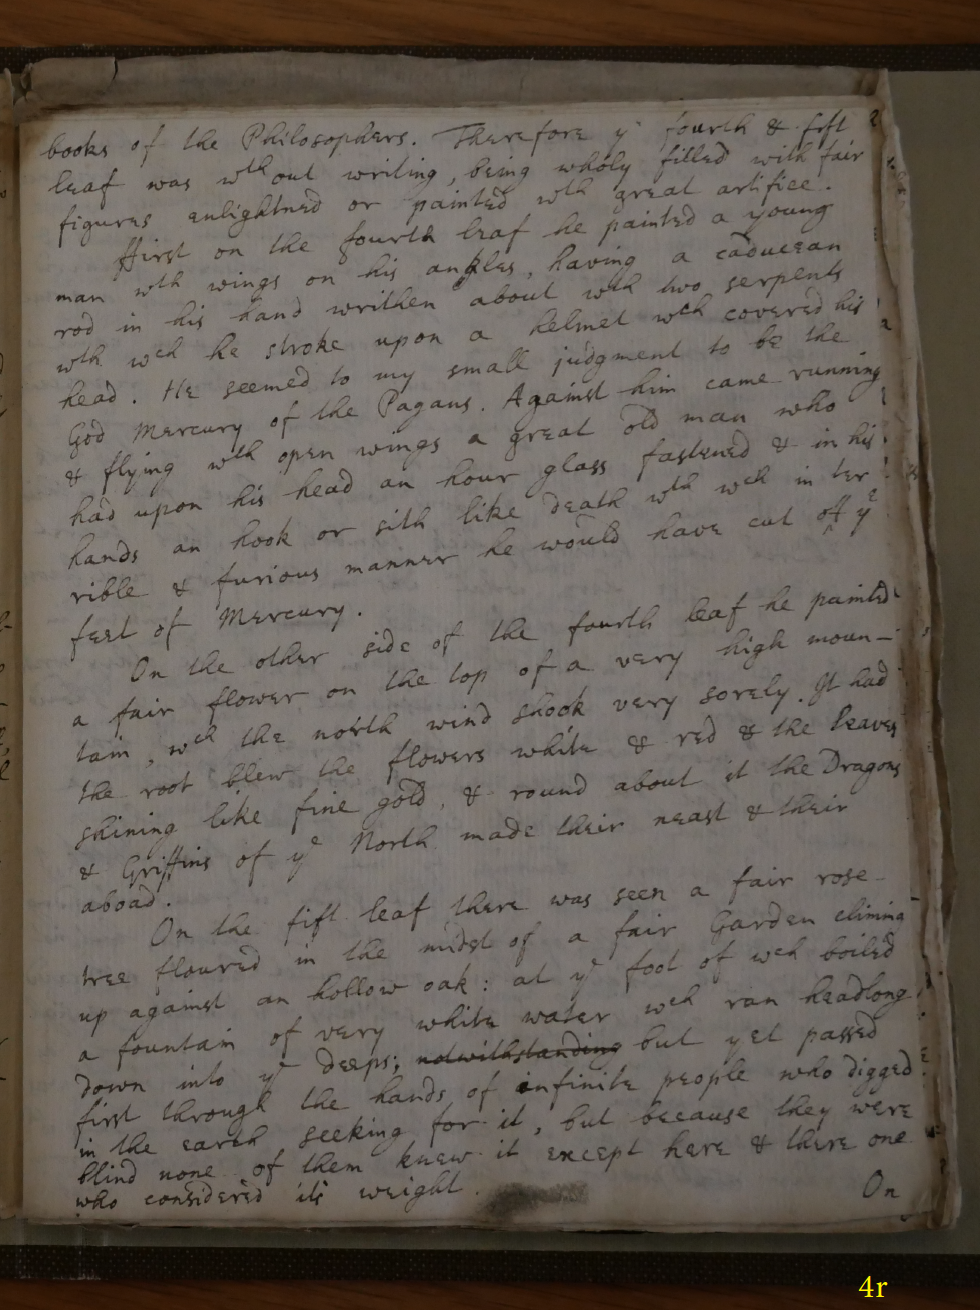 books of the Philosophers. Therefore yᵉ fourth & fift
leaf was wᵗʰout writing, being wholy filled with fair
figures enlightned or painted wᵗʰ great artifice.
ffirst on the fourth leaf he painted a young
man wᵗʰ wings on his ankles, having a caducean
rod in his hand writhen about wᵗʰ two serpents
wᵗʰ wᶜʰ he stroke upon a helmet wᶜʰ covered his
head. He seemed to my small judgment to be the
God Mercury of the Pagans. Against him came running
& flying wᵗʰ open wings a great old man who
had upon his head an hour glass fastened & in his
hands an hook or sith like death wᵗʰ wᶜʰ in ter
rible & furious manner he would have cut off yᵉ
feet of Mercury.
On the other side of the fourth leaf he painted
a fair flower on the top of a very high moun-
tain, wᶜʰ the north wind shook very sorely. It had
the root blew the flowers white & red & the leaves
shining like fine gold, & round about it the Dragons
& Griffins of yᵉ North made their neast & their
aboad.
On the fift leaf there was seen a fair rose-
tree floured in the midst of a fair Garden climing
up against an hollow oak: at yᵉ foot of wᶜʰ boiled
a fountain of very white water wᶜʰ ran headlong
down into yᵉ deeps; notwithstanding but yet passed
first through the hands of infinite people who digged
in the earth seeking for it, but because they were
blind none of them knew it except here & there one
who considered its weight.
On
4r